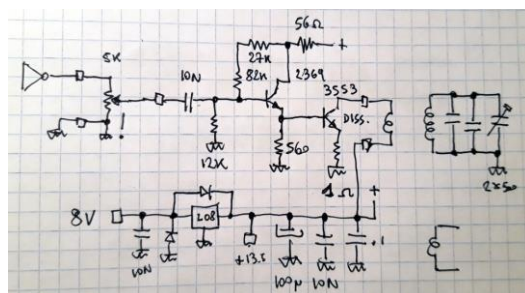 56Ω
27K
+
5K
10N
82K
2369
3553
DISS.
!
12K
560
1 Ω
2x50
8V
L08
+
10N
+13.5
100µ
10N
.1